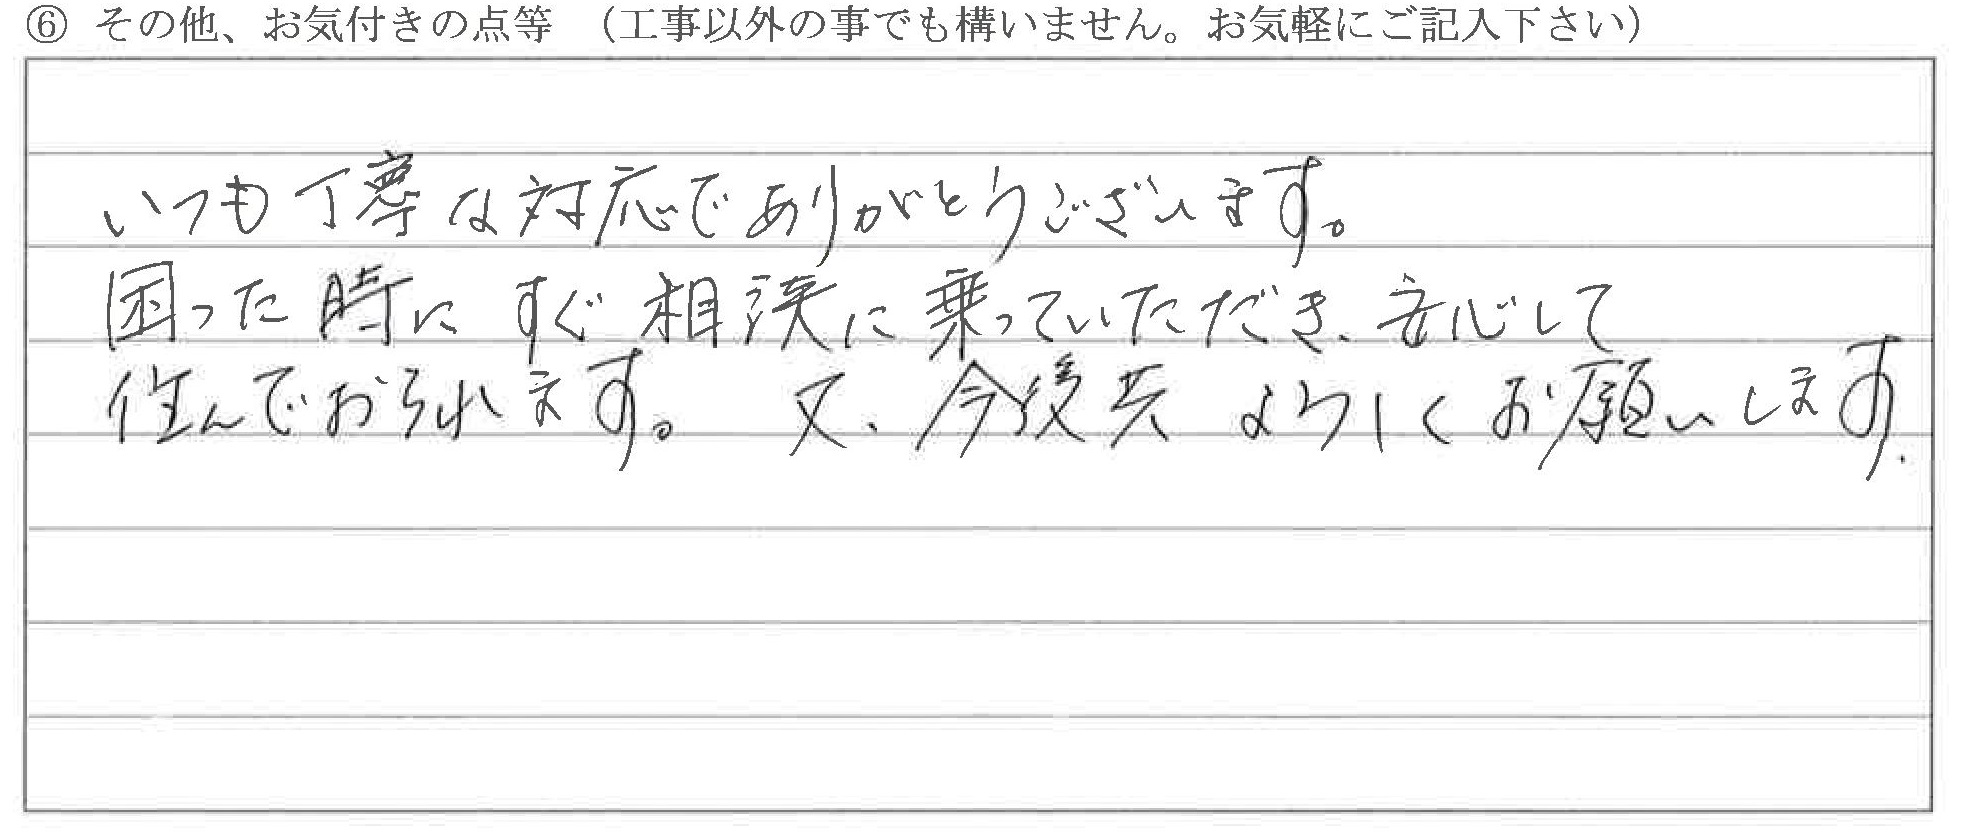 ⑥ その他、お気付きの点等 （工事以外の事でも構いません。お気軽にご記入下さい）
いつも丁寧な対応でありがとうございます。
困った時に すぐ相談に乗っていただき、安心して
住んでおられます。 又、今後共 よろしくお願いします.